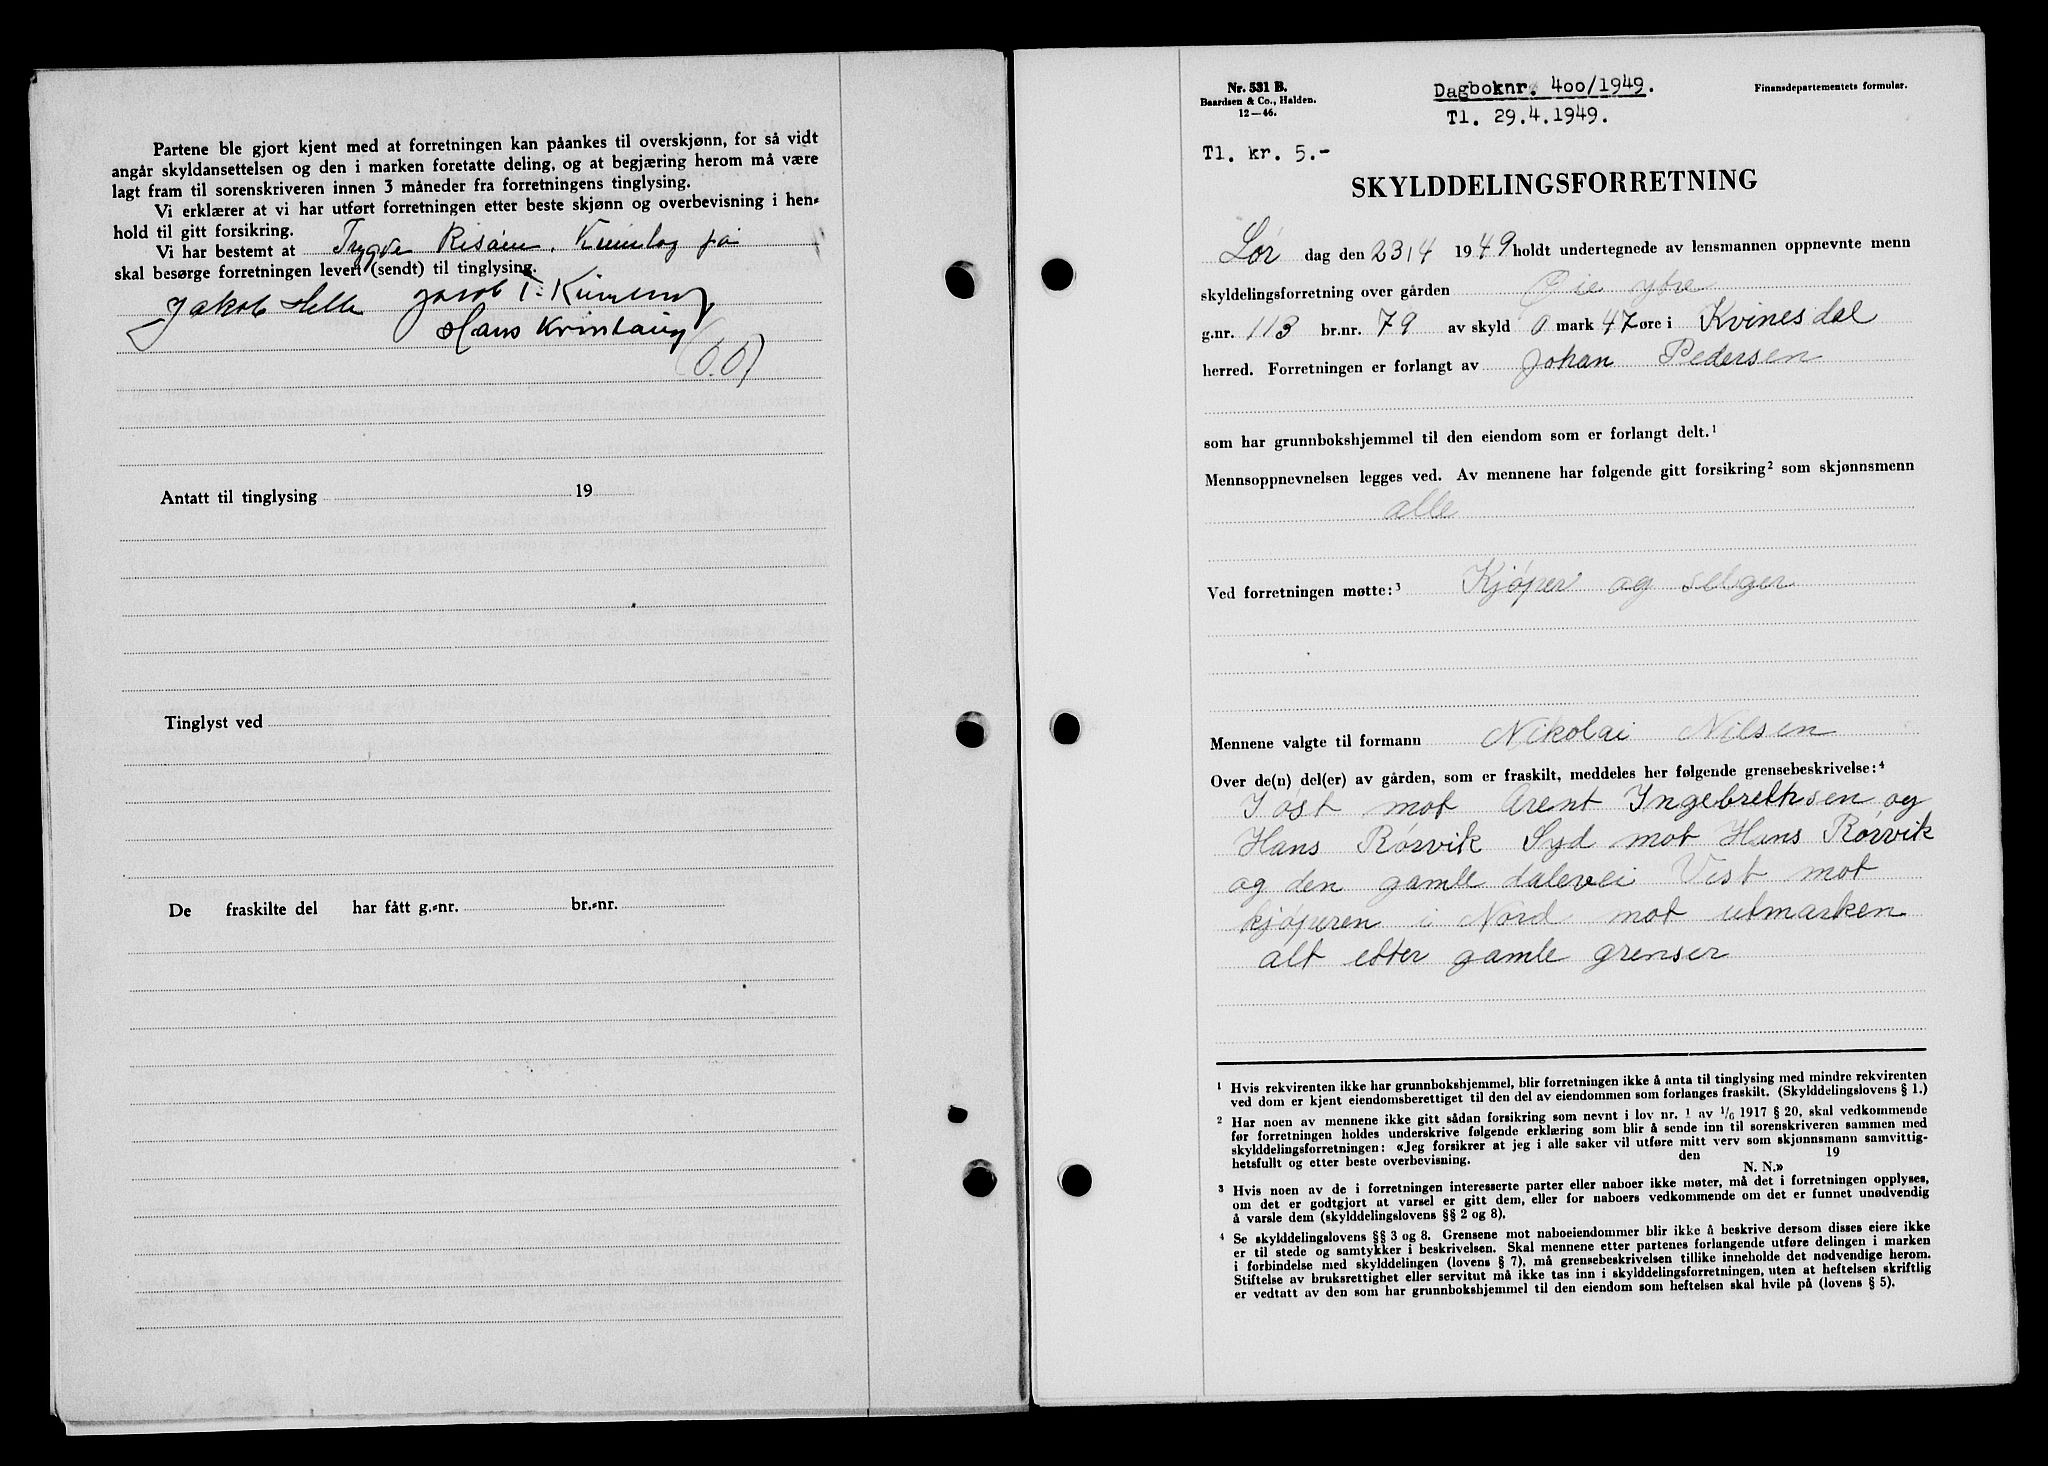 Partene ble gjort kjent med at forretningen kan påankes til overskjønn, for så vidt
angår skyldansettelsen og den i marken foretatte deling, og at begjæring herom må være
lagt fram til sorenskriveren innen 3 måneder fra forretningens tinglysing.
Vi erklærer at vi har utført forretningen etter beste skjønn og overbevisning i hen-
hold til gitt forsikring.
Vi har bestemt at Trygve
skal besørge forretningen levert (sendt) til tinglysing.
Jakob Helle Jacob T.
Hans Kvinlaug
Antatt til tinglysing 19
Tinglyst ved
De fraskilte del har fått g.-nr. br.-nr.
Nr. 531 B.
Baardsen & Co., Halden.
12—46.
Dagboknr. 400/1949.
Tl. 29.4.1949.
Finansdepartementets formular.
Tl. kr. 5.-
SKYLDDELINGSFORRETNING
Lør dag den 23/4 1949 holdt undertegnede av lensmannen oppnevnte menn
skyldelingsforretning over gården Øie ytre
g.nr. 113 br.nr. 79 av skyld 0 mark 47 øre i Kvinesdal
herred. Forretningen er forlangt av Johan Pedersen
som har grunnbokshjemmel til den eiendom som er forlangt delt.¹
Mennsoppnevnelsen legges ved. Av mennene har følgende gitt forsikring² som skjønnsmenn
alle
Ved forretningen møtte:³ Kjøper og selger
Mennene valgte til formann Nikolai Nilsen
Over de(n) del(er) av gården, som er fraskilt, meddeles her følgende grensebeskrivelse:⁴
I øst mot Arent Ingebrethsen og
Hans Rørvik Syd mot Hans Rørvik
og den gamle dalevei Vest mot
kjøperen i Nord mot utmarken
alt etter gamle grenser
¹ Hvis rekvirenten ikke har grunnbokshjemmel, blir forretningen ikke å anta til tinglysing med mindre rekvirenten
ved dom er kjent eiendomsberettiget til den del av eiendommen som forlanges fraskilt. (Skylddelingslovens § 1.)
² Har noen av mennene ikke gitt sådan forsikring som nevnt i lov nr. 1 av 1/6 1917 § 20, skal vedkommende
før forretningen holdes underskrive følgende erklæring som blir å sende inn til sorenskriveren sammen med
skylddelingsforretningen: «Jeg forsikrer at jeg i alle saker vil utføre mitt verv som skjønnsmann samvittig-
hetsfullt og etter beste overbevisning. den 19
N. N.»
³ Hvis noen av de i forretningen interesserte parter eller naboer ikke møter, må det i forretningen opplyses,
om det er godtgjort at varsel er gitt dem, eller for naboers vedkommende om det er funnet unødvendig
å varsle dem (skylddelingslovens §§ 2 og 8).
⁴ Se skylddelingslovens §§ 3 og 8. Grensene mot naboeiendommer blir ikke å beskrive dersom disses eiere ikke
er til stede og samtykker i beskrivelsen. Skal mennene etter partenes forlangende utføre delingen i marken
i forbindelse med skylddelingen (lovens § 7), må grensebeskrivelsen tillike inneholde det nødvendige herom.
Stiftelse av bruksrettighet eller servitut må ikke tas inn i skylddelingsforretningen, uten at heftelsen skriftlig
er vedtatt av den som har grunnbokshjemmel til den eiendom som heftelsen skal hvile på (lovens § 5).